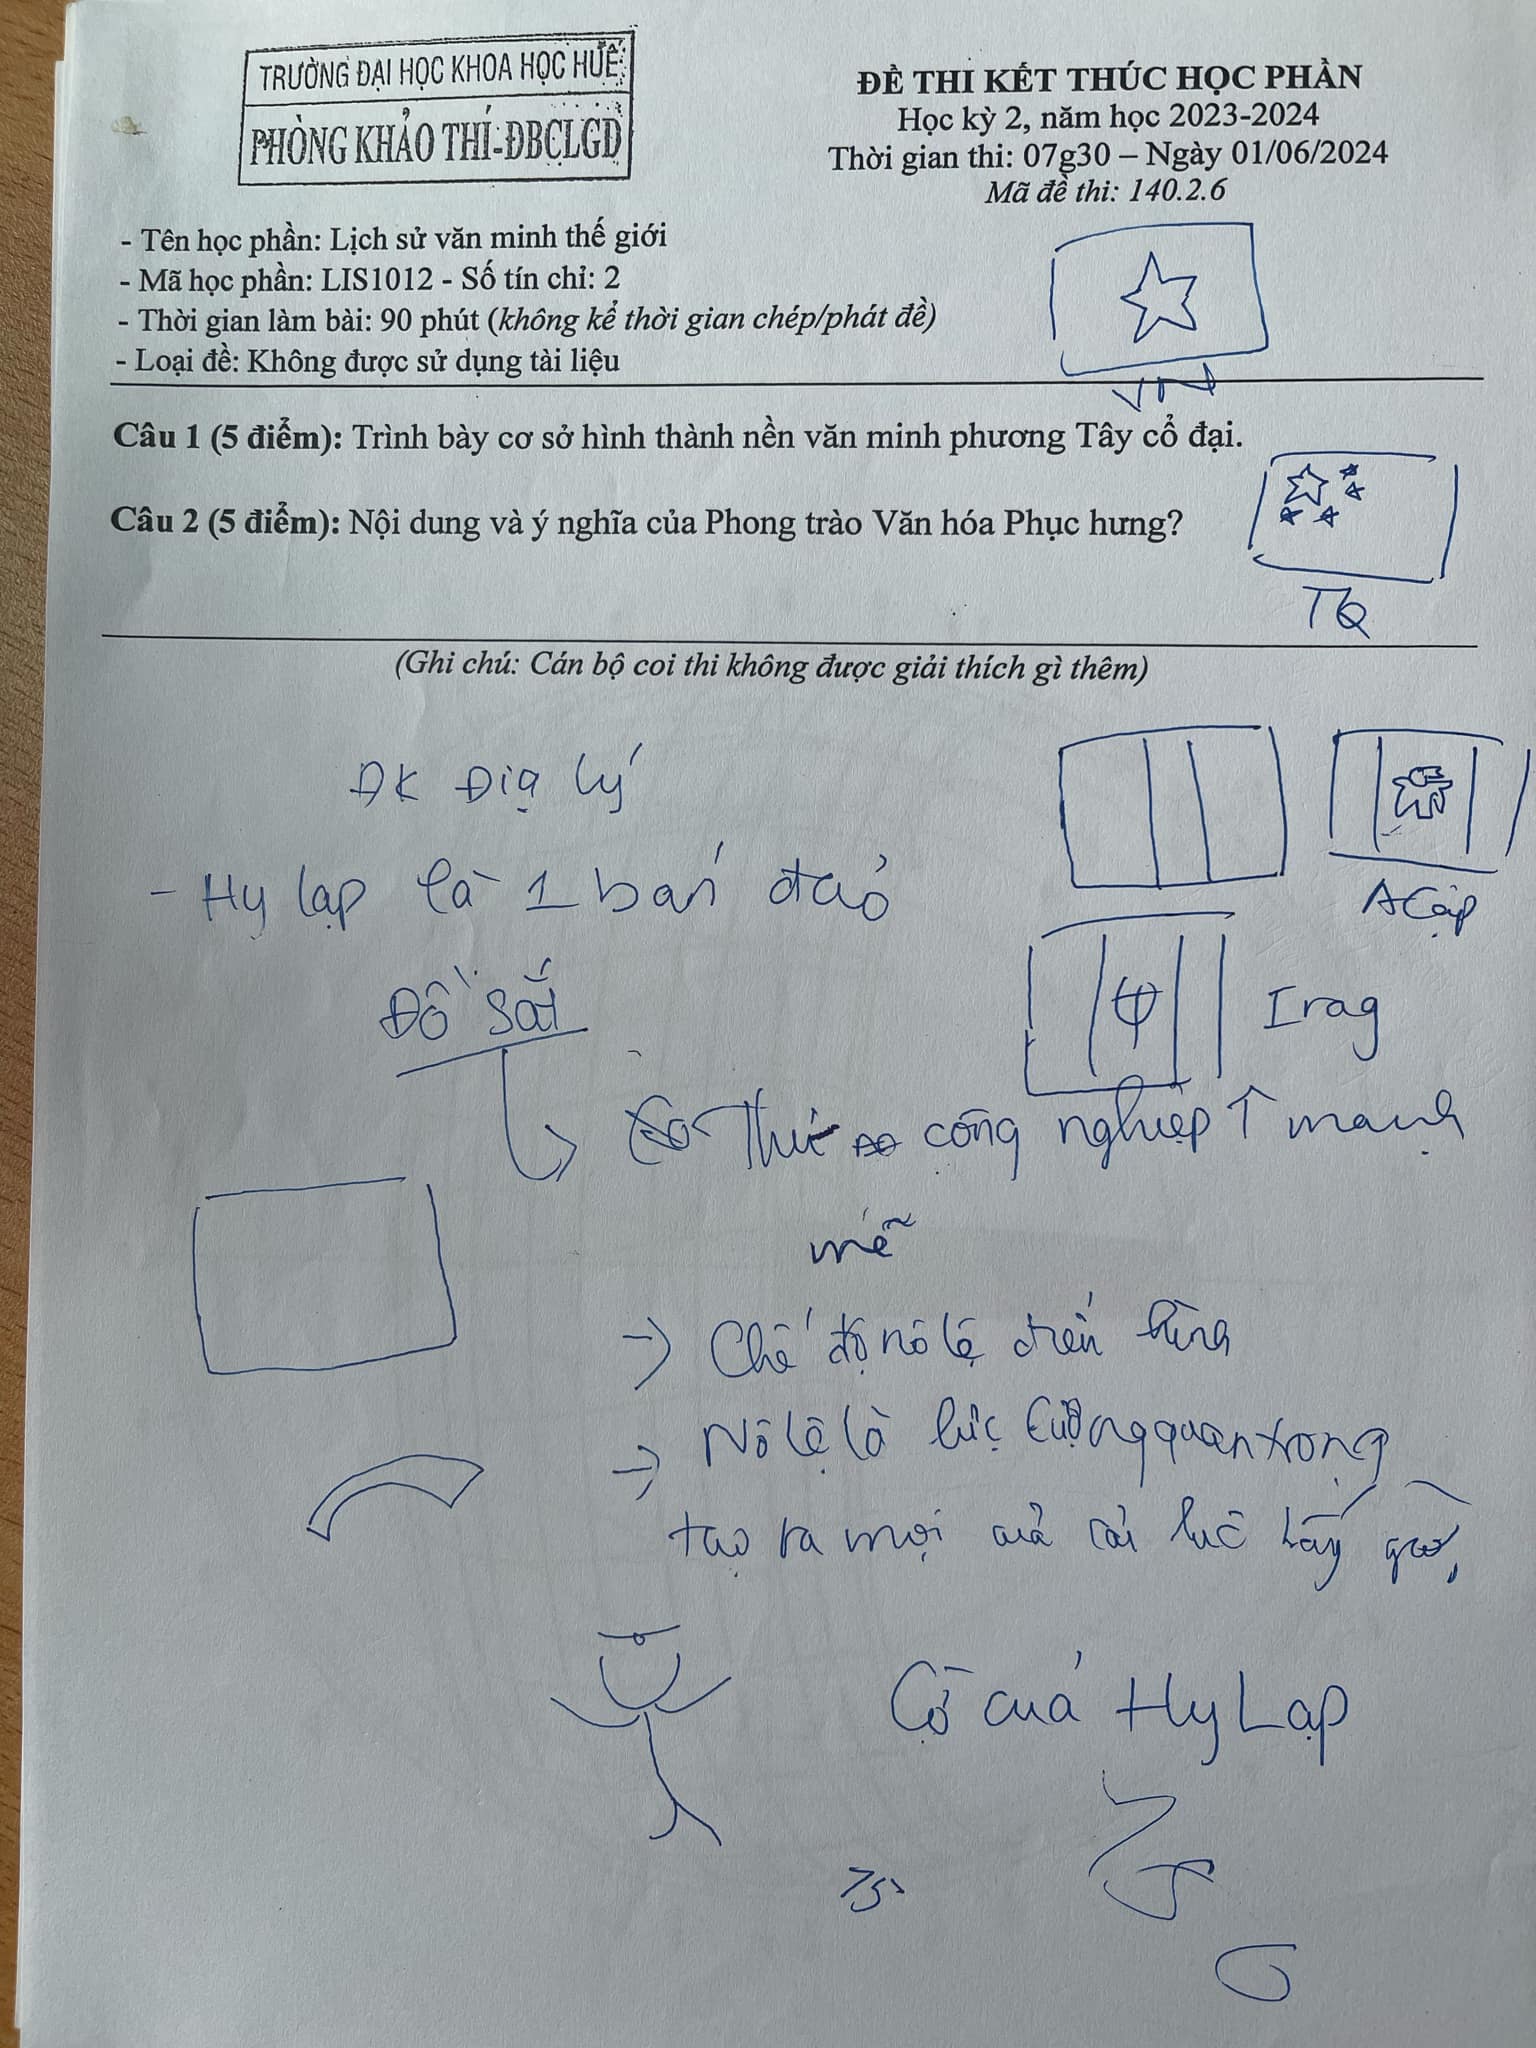 TRƯỜNG ĐẠI HỌC KHOA HỌC HUẾ
PHÒNG KHẢO THÍ-ĐBCLGD
ĐỀ THI KẾT THÚC HỌC PHẦN
Học kỳ 2, năm học 2023-2024
Thời gian thi: 07g30 – Ngày 01/06/2024
Mã đề thi: 140.2.6
- Tên học phần: Lịch sử văn minh thế giới
- Mã học phần: LIS1012 - Số tín chỉ: 2
- Thời gian làm bài: 90 phút (không kể thời gian chép/phát đề)
- Loại đề: Không được sử dụng tài liệu
VN
Câu 1 (5 điểm): Trình bày cơ sở hình thành nền văn minh phương Tây cổ đại.
Câu 2 (5 điểm): Nội dung và ý nghĩa của Phong trào Văn hóa Phục hưng?
TQ
(Ghi chú: Cán bộ coi thi không được giải thích gì thêm)
ĐK Địa lý
- Hy lạp là 1 bán đảo
A Cập
Đồ sắt
Iraq
Thủ công nghiệp ↑ mạnh
mẽ
→ Chế độ nô lệ điển hình
→ Nô lệ là lực lượng quan trọng
tạo ra mọi của cải lúc bấy giờ,
Cờ của Hy Lạp